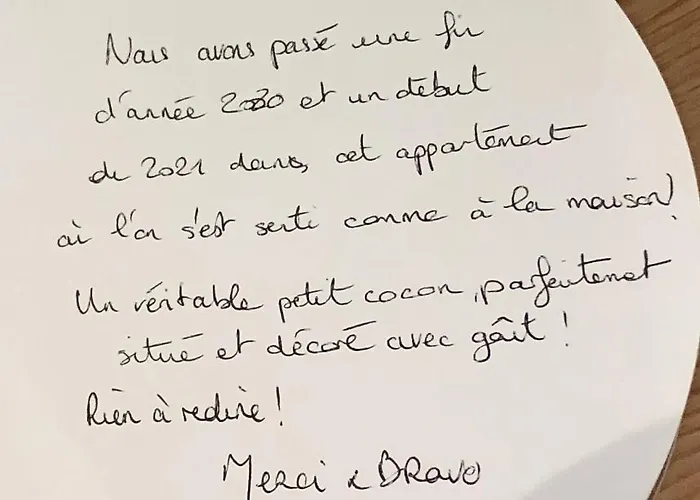 Nous avons passé une fin
d'année 2020 et un début
de 2021 dans cet appartement
où l'on s'est senti comme à la maison!
Un véritable petit cocon, parfaitement
situé et décoré avec goût !
Rien à redire !
Merci & BRAVO